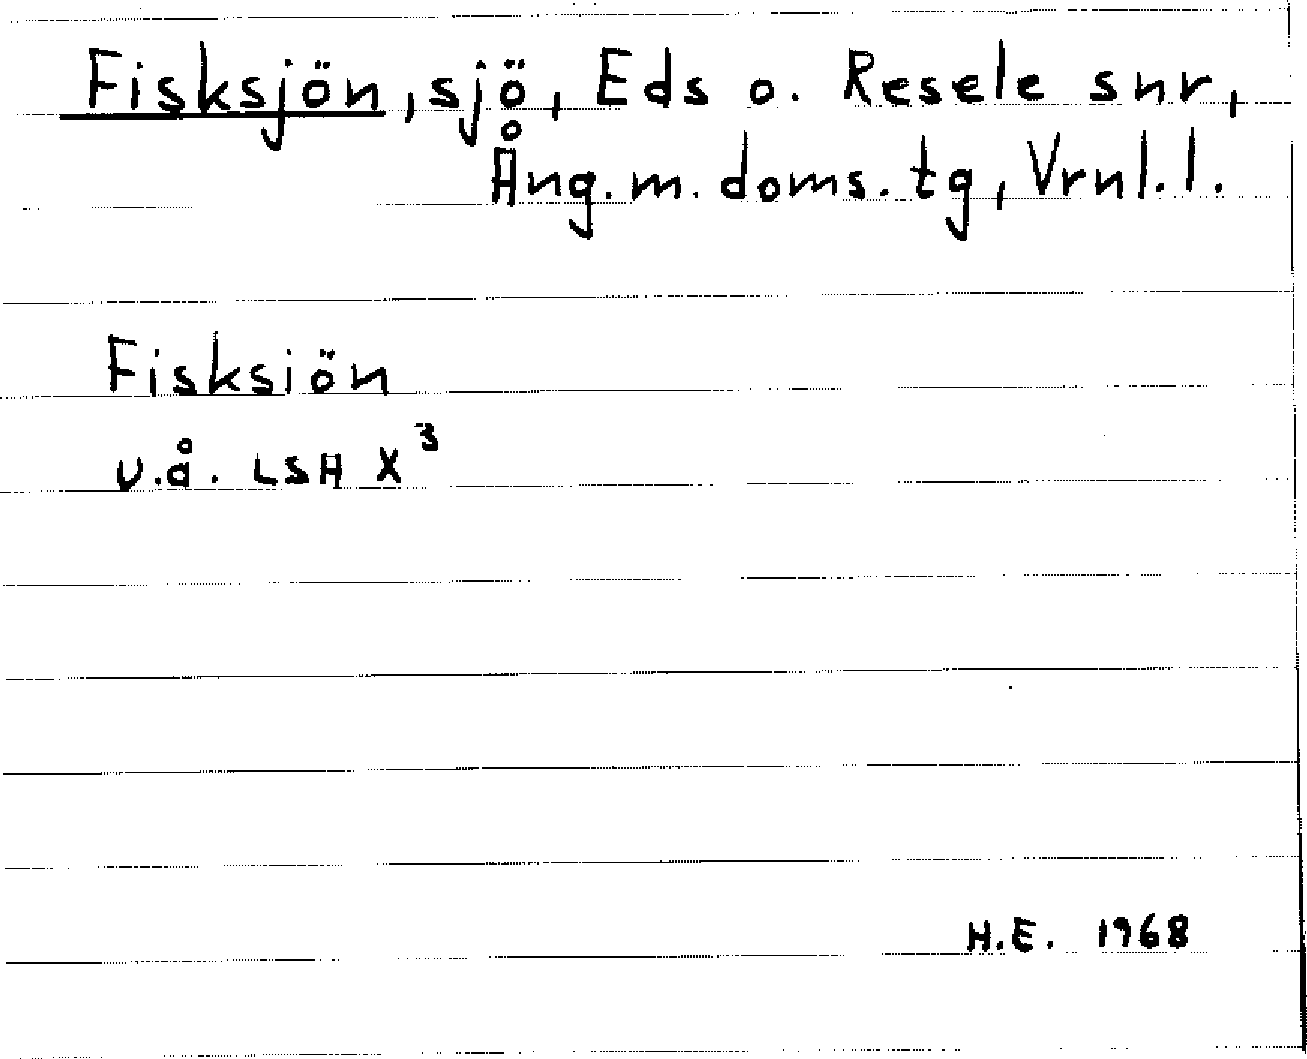 Fisksjön, sjö, Eds o. Resele snr,
Ång. m. doms. tg, Vrnl. l.
Fisksiön
u.å. LSA X³
H.E. 1968